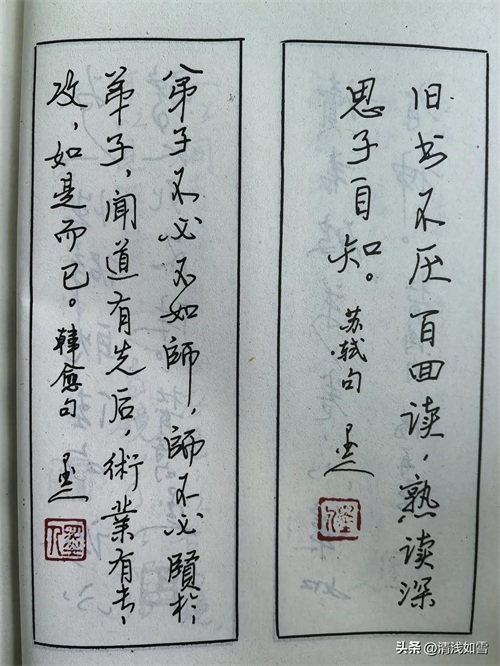 旧书不厌百回读，熟读深
思子自知。 苏轼句
弟子不必不如師，師不必賢於
弟子，聞道有先后，術業有专，
攻，如是而已。韓愈句
头条 @清浅如雪